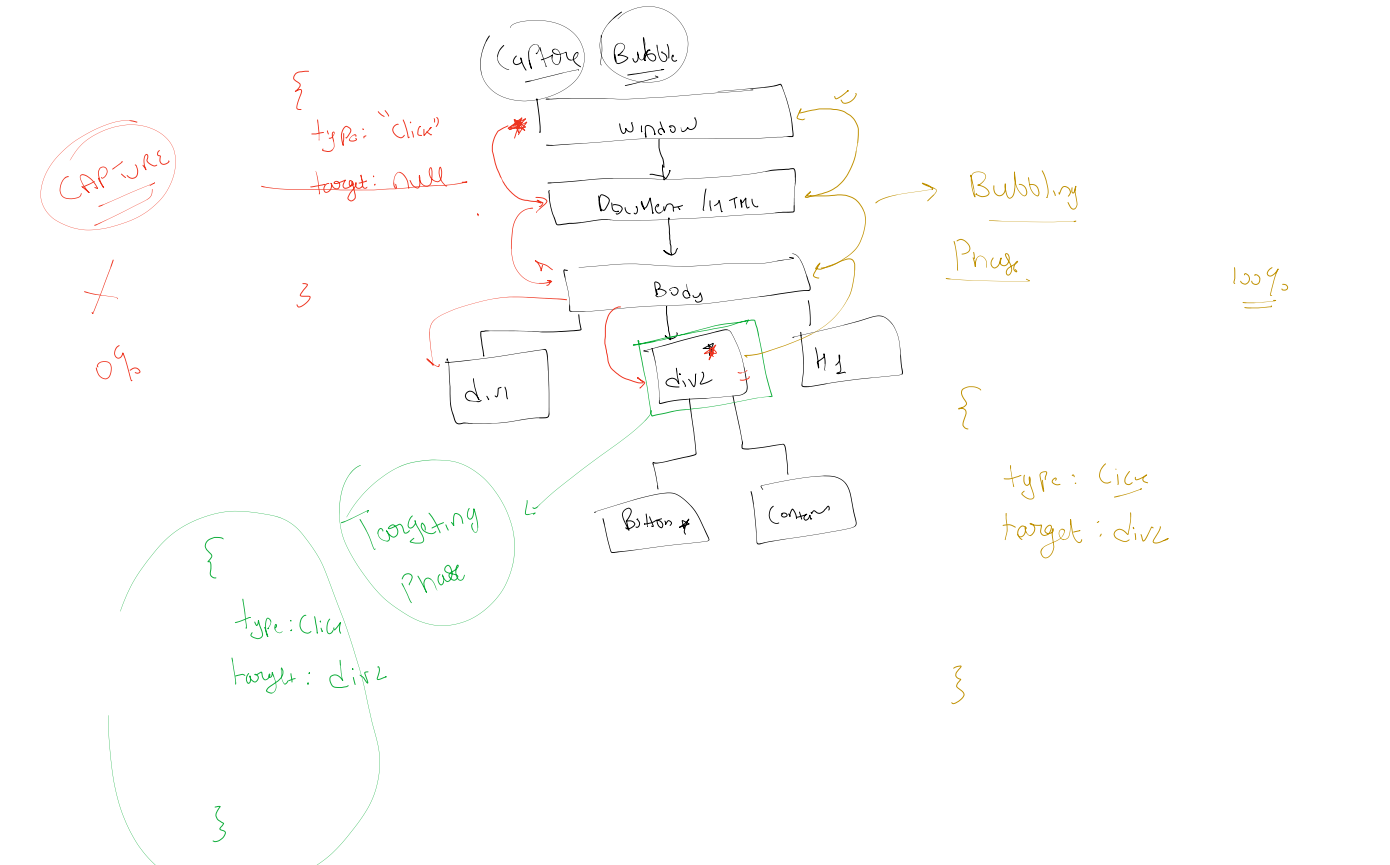 Capture
Bubble
{
type: "Click"
target: null
}
CAPTURE
X
0%
Window
Document / HTML
Body
div1
div2
H1
Button *
Bubbling
Phase
100%
{
type: Click
target: div2
}
Targeting
Phase
{
type: Click
target: div2
}